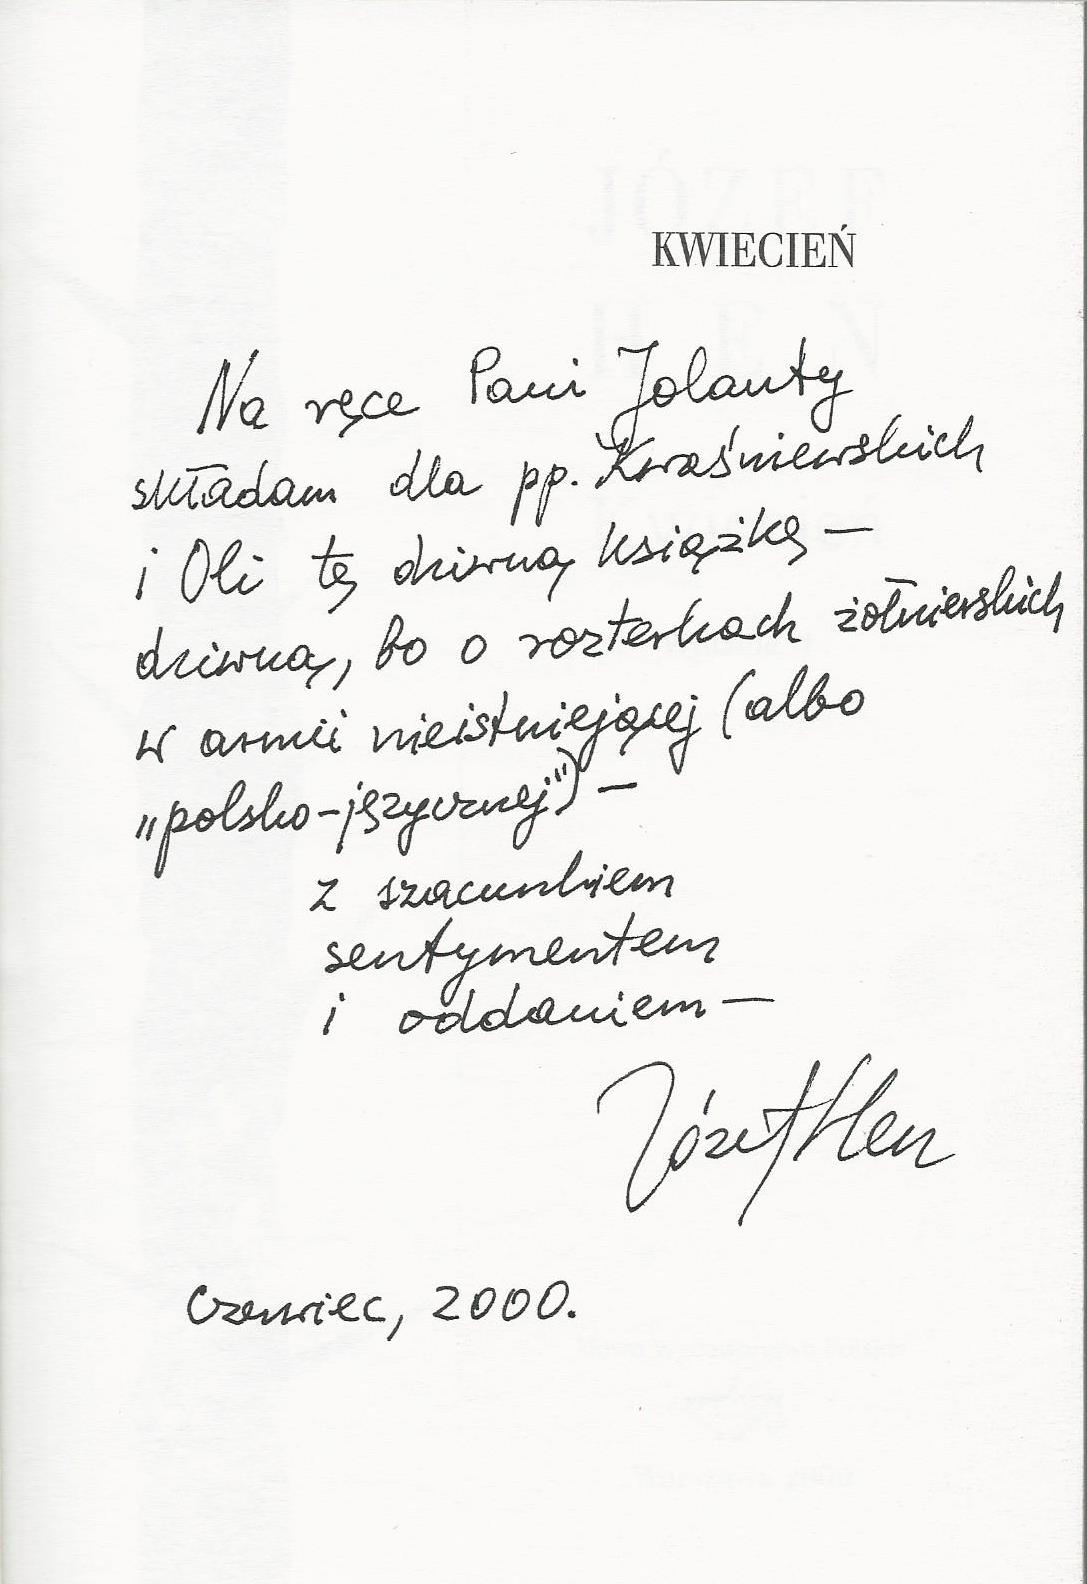 KWIECIEŃ
Na ręce Pani Jolanty
składam dla pp. Kwaśniewskich
i Oli tę dziwną książkę —
dziwną, bo o rozterkach żołnierskich
w armii nieistniejącej (albo
„polsko-języcznej”) —
z szacunkiem
sentymentem
i oddaniem —
Józef Hen
Czerwiec, 2000.